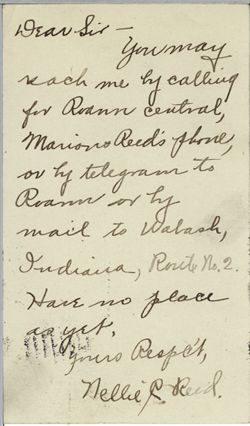 Dear Sir —
You may
reach me by calling
for Roann central,
Marion Reed's phone,
or by telegram to
Roann or by
mail to Wabash,
Indiana, Route No. 2.
Have no place
as yet,
Yours Resp't,
Nellie C. Reed.